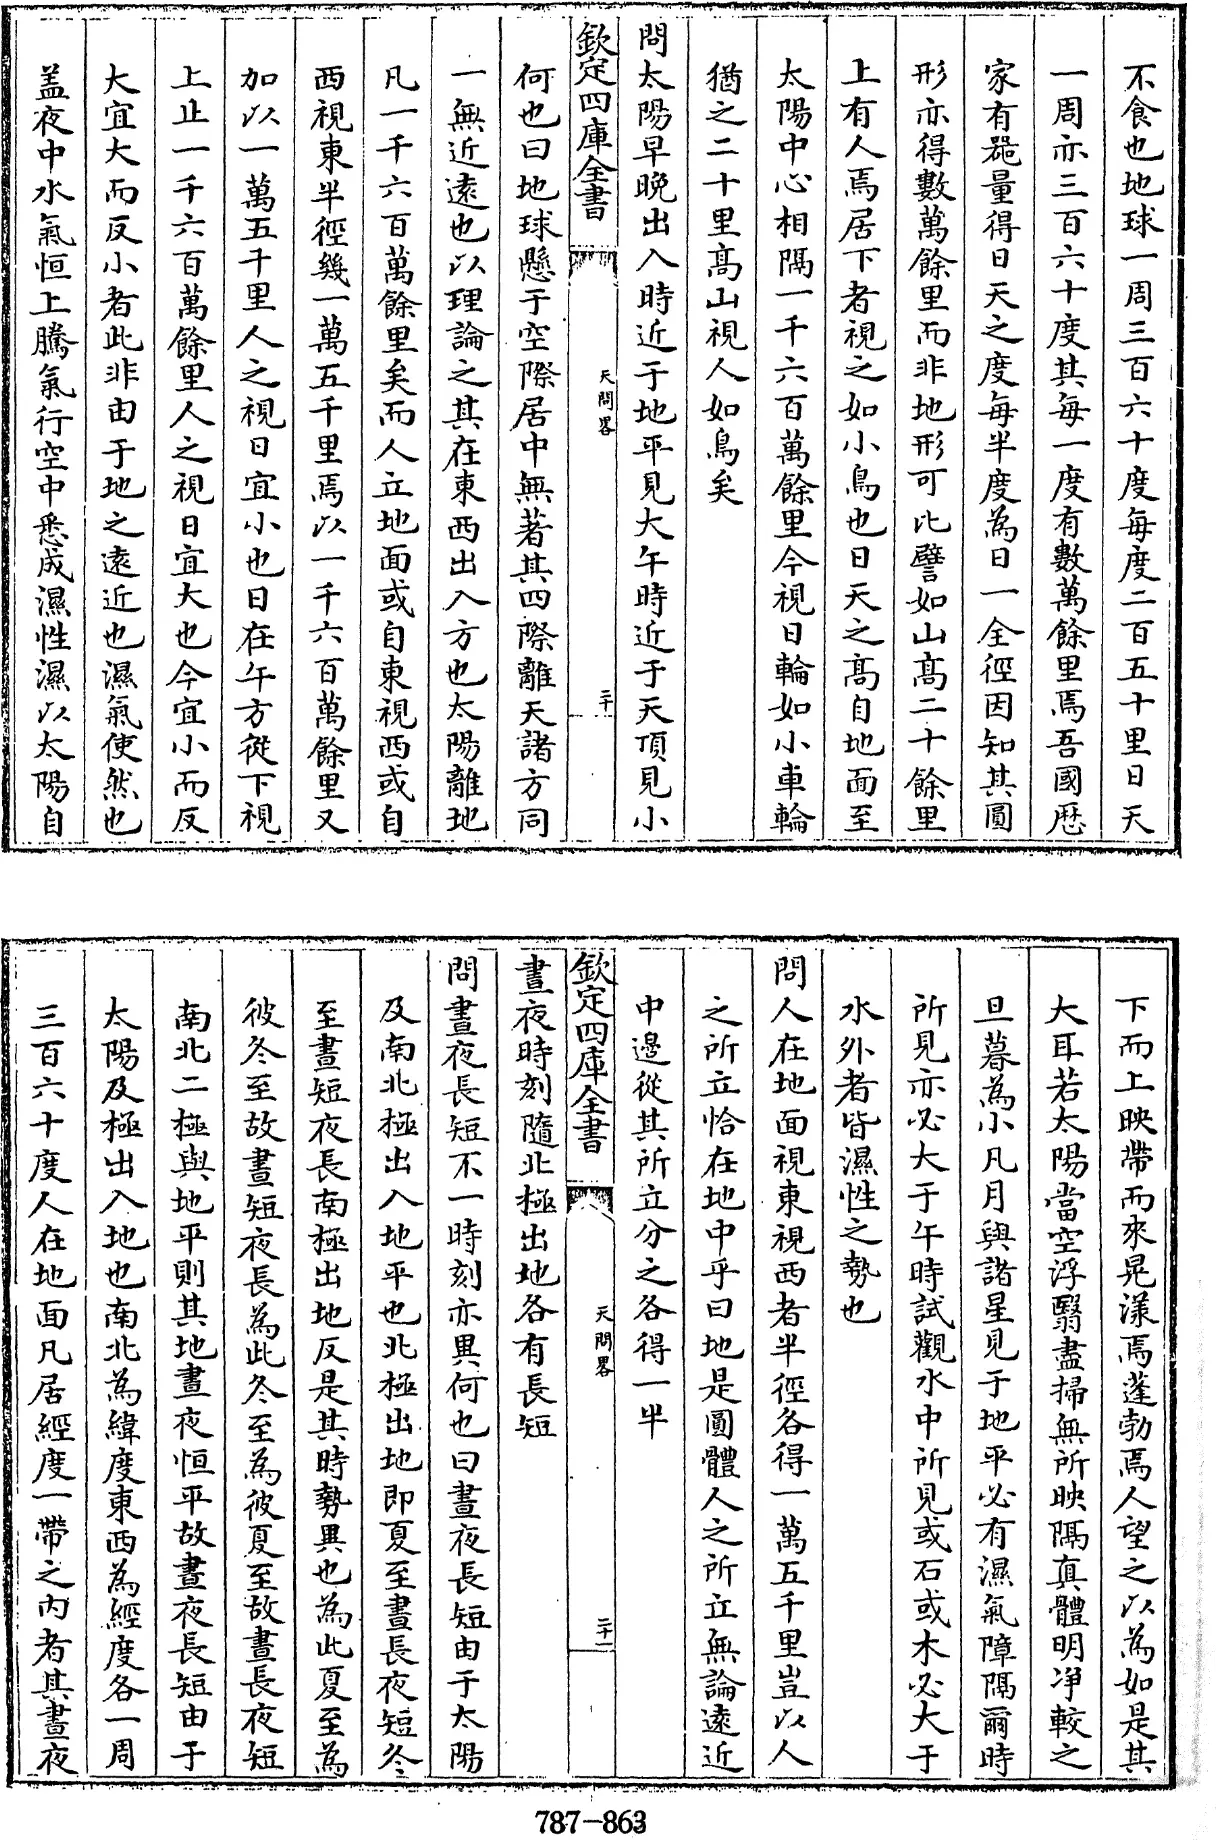 不食也地球一周三百六十度每度二百五十里日天
一周亦三百六十度其每一度有數萬餘里焉吾國厯
家有噐量得日天之度每半度為日一全徑因知其圓
形亦得數萬餘里而非地形可比譬如山髙二十餘里
上有人焉居下者視之如小鳥也日天之髙自地面至
太陽中心相隔一千六百萬餘里今視日輪如小車輪
猶之二十里髙山視人如鳥矣
問太陽早晚出入時近于地平見大午時近于天頂見小
欽定四庫全書
天問畧
二十
何也曰地球懸于空際居中無著其四際離天諸方同
一無近逺也以理論之其在東西出入方也太陽離地
凡一千六百萬餘里矣而人立地面或自東視西或自
西視東半徑幾一萬五千里焉以一千六百萬餘里又
加以一萬五千里人之視日宜小也日在午方從下視
上止一千六百萬餘里人之視日宜大也今宜小而反
大宜大而反小者此非由于地之逺近也濕氣使然也
盖夜中水氣恒上騰氣行空中悉成濕性濕以太陽自
下而上映帶而來晃漾焉蓬勃焉人望之以為如是其
大耳若太陽當空浮翳盡掃無所映隔真體明淨較之
旦暮為小凡月與諸星見于地平必有濕氣障隔爾時
所見亦必大于午時試觀水中所見或石或木必大于
水外者皆濕性之勢也
問人在地面視東視西者半徑各得一萬五千里豈以人
之所立恰在地中乎曰地是圓體人之所立無論逺近
中邊從其所立分之各得一半
欽定四庫全書
天問畧
二十一
晝夜時刻隨北極出地各有長短
問晝夜長短不一時刻亦異何也曰晝夜長短由于太陽
及南北極出入地平也北極出地即夏至晝長夜短冬
至晝短夜長南極出地反是其時勢異也為此夏至為
彼冬至故晝短夜長為此冬至為彼夏至故晝長夜短
南北二極與地平則其地晝夜恒平故晝夜長短由于
太陽及極出入地也南北為緯度東西為經度各一周
三百六十度人在地面凡居經度一帶之内者其晝夜
787-863